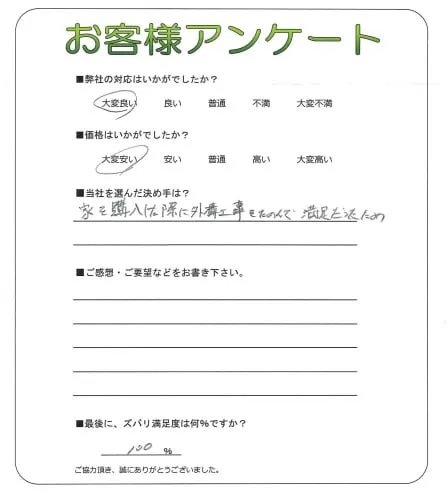 お客様アンケート
■弊社の対応はいかがでしたか?
大変良い 良い 普通 不満 大変不満
■価格はいかがでしたか?
大変安い 安い 普通 高い 大変高い
■当社を選んだ決め手は?
家を購入した際に外構工事をたのんで 満足を
■ご感想・ご要望などをお書き下さい。
■最後に、ズバリ満足度は何%ですか?
100 %
ご協力頂き、誠にありがとうございました。